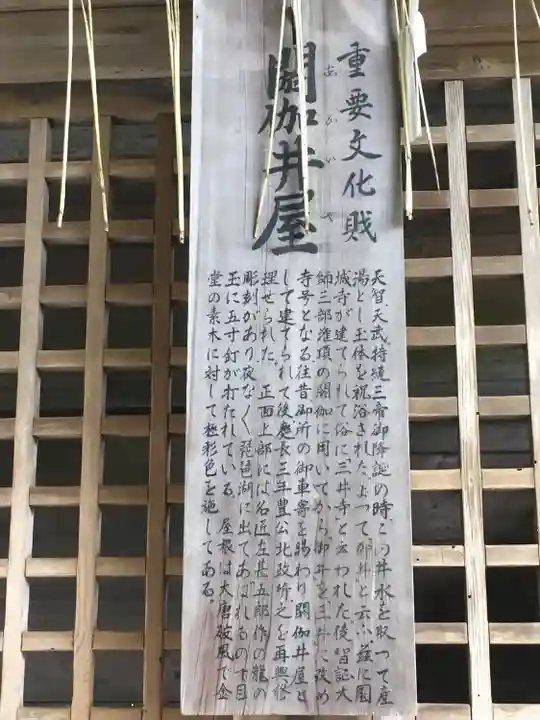 重要文化財
閼伽井屋
あかいや
天智天武持統三帝御降誕の時、この井水を取って産
湯とし玉体を祝浴されたよって御井と云ふ茲に園
城寺が建てられて俗に三井寺と云われた後智証大
師三部灌頂の閼伽に用いてから御井を三井に改め
寺号となる往昔御所の御車寄を賜わり閼伽井屋と
して建てられて後慶長三年豊公北政所之を再興修
理せられた。正面上部には名匠左甚五郎作の龍の
彫刻があり夜なく琵琶湖に出てあばれるので目
玉に五寸釘が打たれている。屋根は大唐破風で金
堂の素木に対して極彩色を施してある。